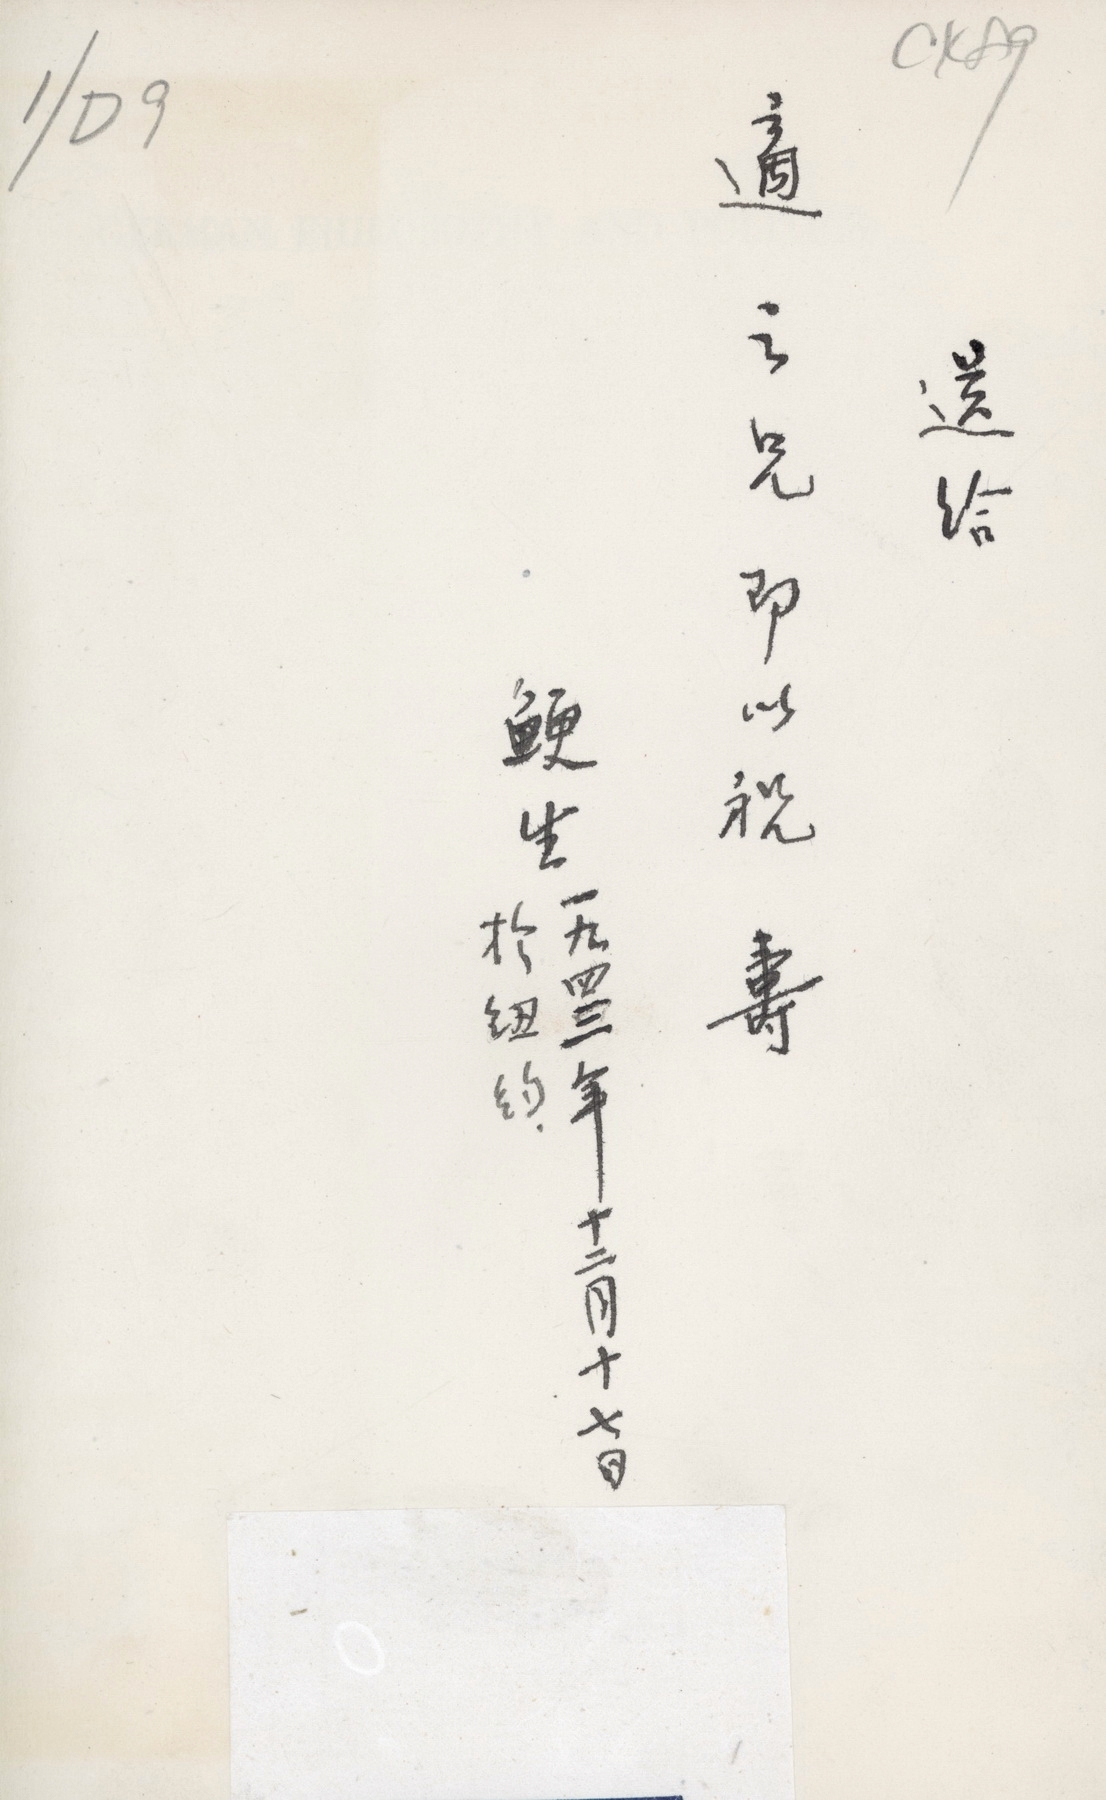 1/D9
送給
適之兄即以祝壽
鯁生
一九四三年十二月十七日
於紐約.